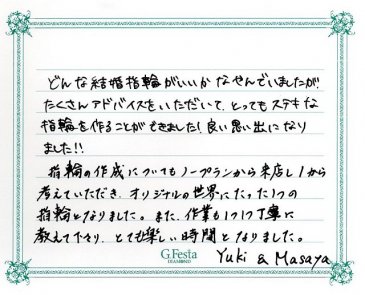 どんな結婚指輪がいいかなやんでいましたが
たくさんアドバイスをいただいて、とってもステキな
指輪を作ることができました!良い思い出になり
ました!!
指輪の作成についてもノープランから来店し1から
考えていただき、オリジナルの世界にたった1つの
指輪となりました。また、作業も1つ1つ丁寧に
教えて下さり、とても楽しい時間となりました。
G.Festa
DIAMOND
Yuki & Masaya